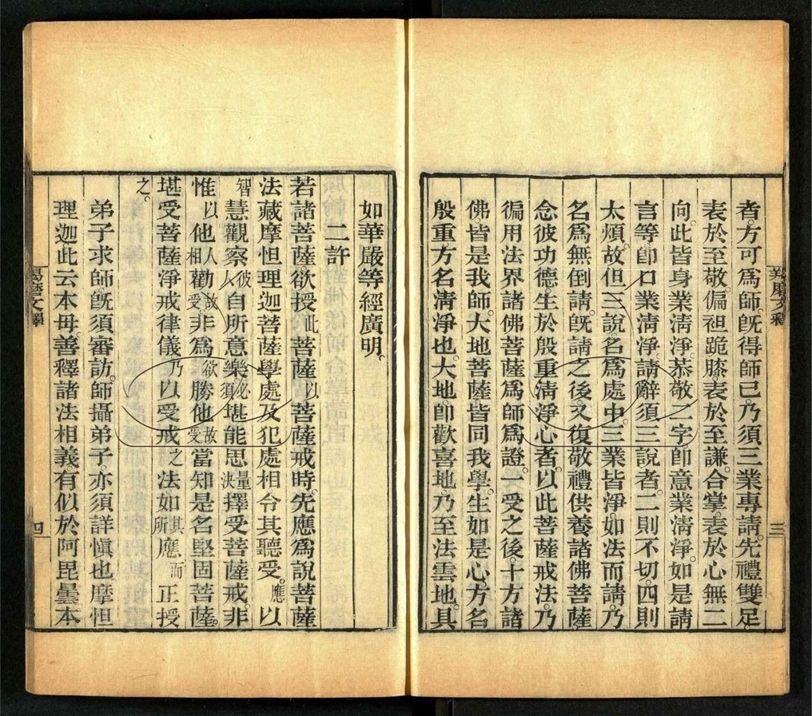 者方可爲師旣得師已乃須三業專請先禮雙足
表於至敬偏袒跪膝表於至謙合掌表於心無二
向此皆身業淸淨恭敬二字卽意業淸淨如是請
言等卽口業淸淨請辭須三說者二則不切四則
太煩故但三說名爲處中三業皆淨如法而請乃
名爲無倒請旣請之後又復敬禮供養諸佛菩薩
念彼功德生於殷重淸淨心者以此菩薩戒法乃
徧用法界諸佛菩薩爲師爲證一受之後十方諸
佛皆是我師大地菩薩皆同我學生如是心方名
殷重方名淸淨也大地卽歡喜地乃至法雲地具
三
如華嚴等經廣明
二許
若諸菩薩欲授此菩薩以菩薩戒時先應爲說菩薩
法藏摩怛理迦菩薩學處及犯處相令其聽受應以
智慧觀察彼人自所意樂必須堪能思量決擇受菩薩戒非
惟以他人相勸故受非爲欲勝他故受當知是名堅固菩薩
堪受菩薩淨戒律儀乃以受戒之法如其所應而正授
之
弟子求師旣須審訪師攝弟子亦須詳愼也摩怛
理迦此云本母善釋諸法相義有似於阿毘曇本
羯磨文釋
四